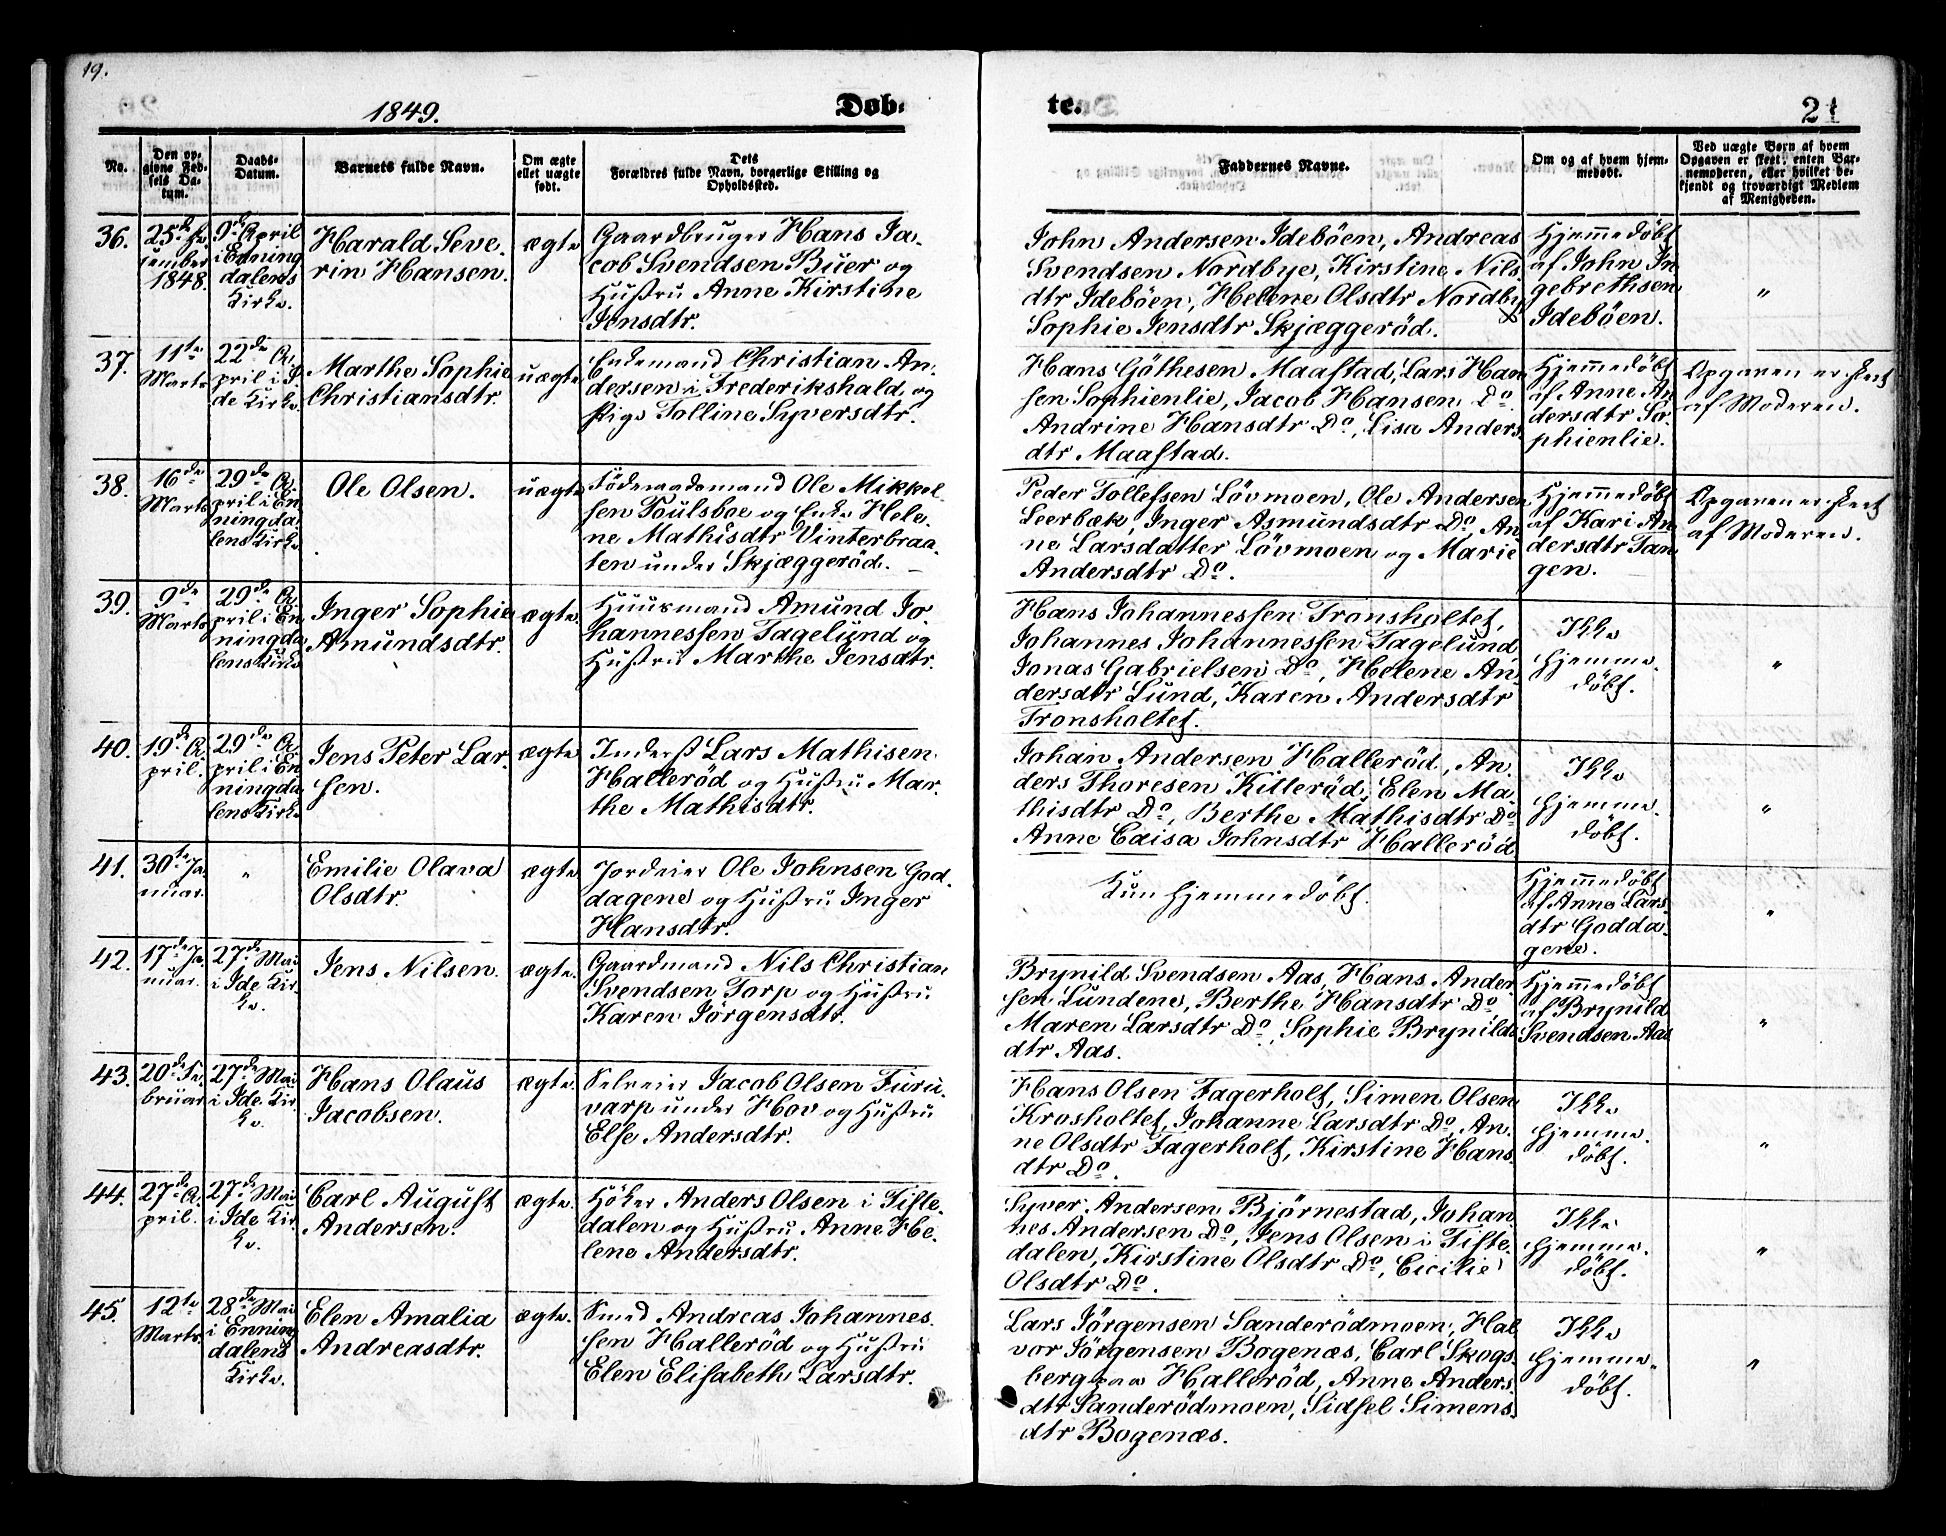 19.
1849.
Døb-
te.
21
No.
Den op-
givne Fød-
sels Da-
tum.
Daabs-
Datum.
Barnets fulde Navn.
Om ægte
ellet uægte
født.
Dets
Forældres fulde Navn, borgerlige Stilling og
Opholdssted.
Faddernes Navne.
Om og af hvem hjem-
medøbt.
Ved uægte Børn af hvem
Opgaven er skeet, enten Bar-
nemoderen, eller hvilket be-
kjendt og troværdigt Medlem
af Menigheden.
36.
25de De-
cember
1848.
9de April
i Enning
dalens
Kirke.
Harald Seve-
rin Hansen.
ægte
Gaardbruger Hans Ja-
cob Svendsen Buer og
Hustru Anne Kirstine
Jensdtr.
John Andersen Ideböen, Andreas
Svendsen Nordbye, Kirstine Nils
dtr Ideböen, Helene Olsdtr Nordby
Sophie Jensdtr Skjæggeröd.
Hjemmedøbt
af John In
gebrethsen
Ideböen.
"
37.
11te
Marts
22de A-
pril i I-
de Kirke.
Marthe Sophie
Christiansdtr.
uægte
Enkemand Christian An-
dersen i Frederikshald, og
Pige Tolline Syversdtr.
Hans Göthesen Maastad, Lars Han
sen Sophienlie, Jacob Hansen Do
Andrine Hansdtr Do, Lisa Anders
dtr Maastad.
Hjemmedøbt
af Anne An
dersdtr So-
phienlie.
Opgaven er skeet
af Moderen.
38.
16de
Marts
29de A-
pril i En
ningda
lens Kirke
Ole Olsen.
uægte
Föderaadsmand Ole Mikkel-
sen Poulsboe og Enke Hele-
ne Mathisdtr Vinterbraa-
ten under Skjæggeröd.
Peder Tollefsen Lövmoen, Ole Andersen
Leerbæk, Inger Asmundsdtr Do, An
ne Larsdatter Lövmoen og Marie
Andersdtr Do.
Hjemmedøbt
af Kari An
dersdtr Tan
gen.
Opgaven er skeet
af Moderen.
39.
9de
Marts
29de A-
pril i En
ningda
lens Kirke
Inger Sophie
Amundsdtr.
ægte
Huusmand Amund Jo-
hannessen Tagelund og
Hustru Marthe Jensdtr.
Hans Johannessen Tronsholtet,
Johannes Johannessen Tagelund
Jonas Gabrielsen Do, Helene An-
dersdtr Lund, Karen Andersdtr
Tronsholtet.
Ikke
hjemme-
døbt.
"
40.
19de A-
pril.
29de A-
pril i En
ningda
lens Kirke
Jens Peter Lar-
sen.
ægte
Inderst Lars Mathisen
Halleröd og Hustru Mar-
the Mathisdtr.
Johan Andersen Halleröd, An-
ders Thoresen Killeröd, Elen Ma-
thisdtr Do, Berthe Mathisdtr Do
Anne Caisa Johnsdtr Halleröd
Ikke
hjemme-
døbt.
"
41.
30te Ja-
nuar.
"
Emilie Olava
Olsdtr.
ægte
Jordeier Ole Johnsen God-
dagene og Hustru Inger
Hansdtr.
Kun hjemmedøbt.
Hjemmedøbt
af Anne Lars
dtr Godda-
gene.
"
42.
17de Ja-
nuar.
27de Mai
i Ide Kir-
ke.
Jens Nilsen.
ægte.
Gaardmand Nils Christian
Svendsen Torp og Hustru
Karen Jörgensdtr.
Brynild Svendsen Aas, Hans Ander
sen Lundene, Berthe Hansdtr Do
Maren Larsdtr Do, Sophie Brynilds
dtr Aas.
Hjemmedøbt
af Brynild
Svendsen Aas
"
43.
20de Fe-
bruar
27de Mai
i Ide Kir-
ke.
Hans Olaus
Jacobsen.
ægte.
Selveier Jacob Olsen Furu-
varp under Hov og Hustru
Else Andersdtr.
Hans Olsen Fagerholt, Simen Olsen
Krosholtet, Johanne Larsdtr Do, An-
ne Olsdtr Fagerholt, Kirstine Hans-
dtr Do.
Ikke
hjemme-
døbt.
"
44.
27de A-
pril.
27de Mai
i Ide Kir-
ke.
Carl August
Andersen.
ægte.
Höker Anders Olsen i Tiste-
dalen og Hustru Anne He-
lene Andersdtr.
Syver Andersen Björnestad, Johan
nes Andersen Do, Jens Olsen i Tiste-
dalen, Kirstine Olsdtr Do, Cicilie
Olsdtr Do.
Ikke
hjemme-
døbt.
"
45.
12te
Marts.
28de Mai
i Enning
dalens
Kirke.
Elen Amalia
Andreasdtr.
ægte.
Smed Andreas Johannes-
sen Halleröd og Hustru
Elen Elisabeth Larsdtr.
Lars Jörgensen Sanderödmoen, Hal
vor Jörgensen Bogenæs, Carl Skogs-
berg paa Halleröd, Anne Anders-
dtr Sanderödmoen, Sidsel Simens-
dtr Bogenæs.
Ikke
hjemme-
døbt.
"